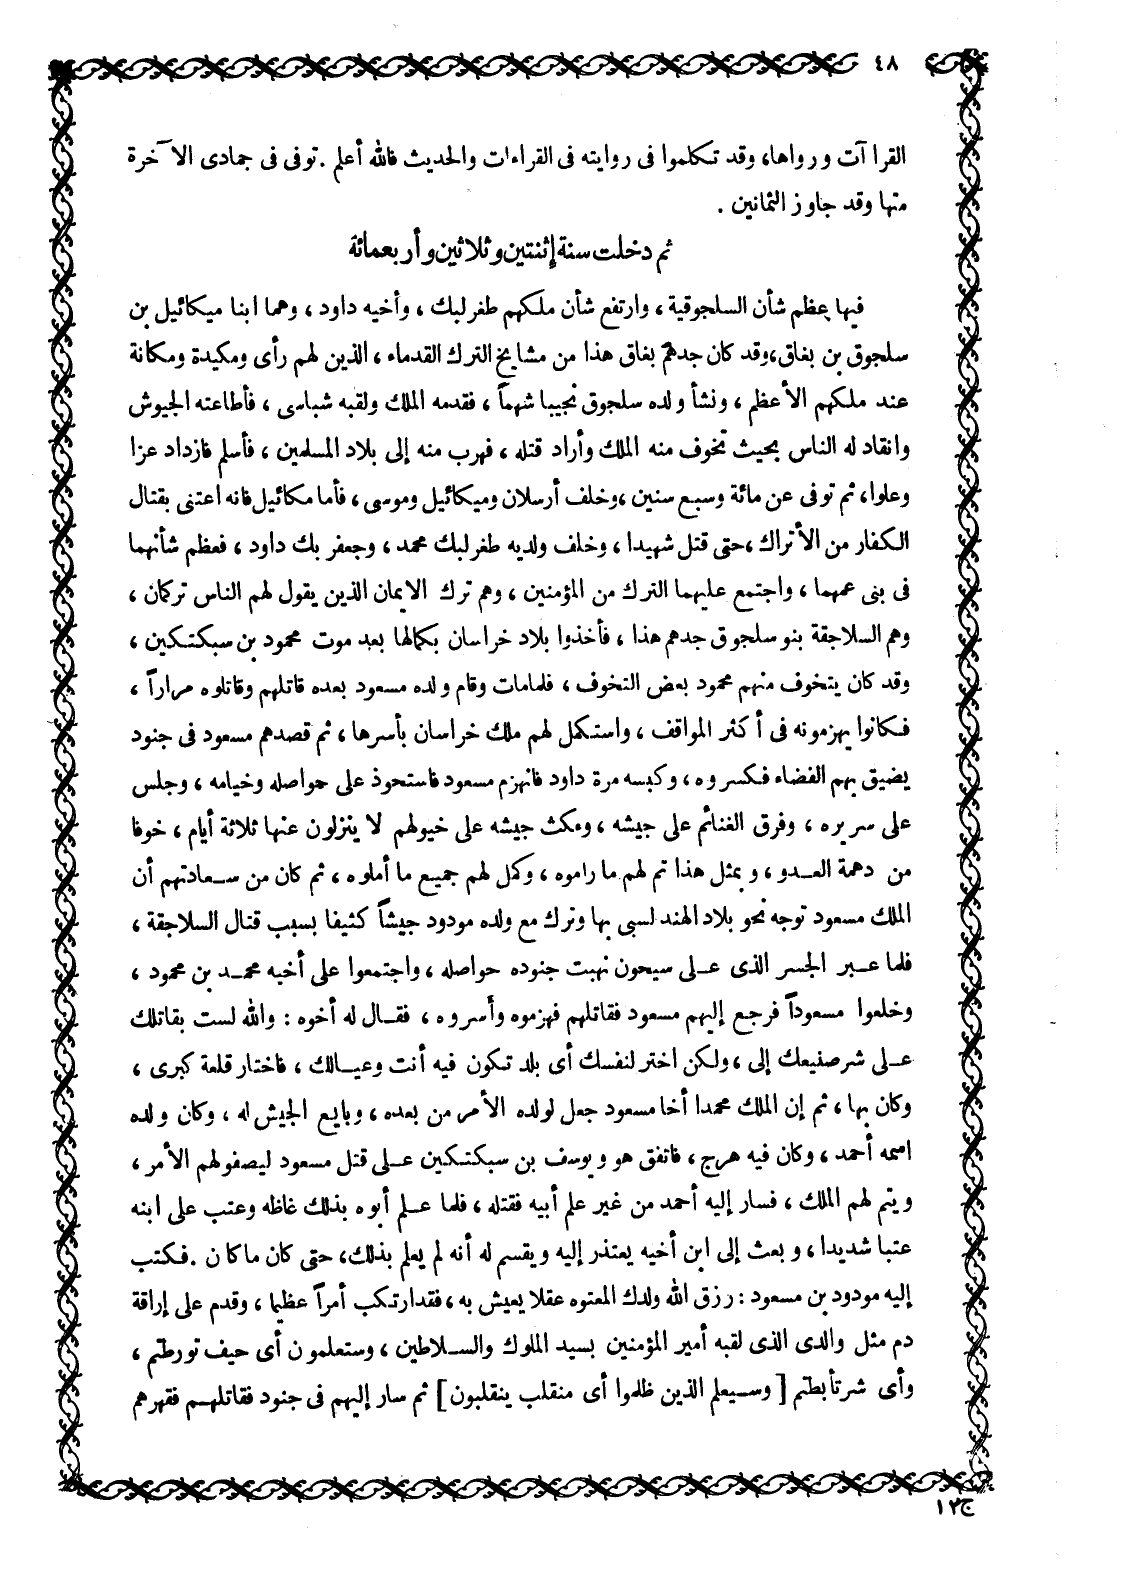 ٤٨
القراآت ورواها، وقد تكلموا فى روايته فى القراءات والحديث فالله أعلم . توفى فى جمادى الآخرة
منها وقد جاوز الثمانين .
ثم دخلت سنة إثنتين وثلاثين وأربعمائة
فيها عظم شأن السلجوقية ، وارتفع شأن ملكهم طغرلبك ، وأخيه داود ، وهما ابنا ميكائيل بن
سلجوق بن بغاق، وقد كان جدهم بغاق هذا من مشايخ الترك القدماء ، الذين لهم رأى ومكيدة ومكانة
عند ملكهم الأعظم ، ونشأ ولده سلجوق نجيبا شهماً ، فقدمه الملك ولقبه شباسى ، فأطاعته الجيوش
وانقاد له الناس بحيث تخوف منه الملك وأراد قتله ، فهرب منه إلى بلاد المسلمين ، فأسلم فازداد عزا
وعلوا، ثم توفى عن مائة وسبع سنين ، وخلف أرسلان وميكائيل وموسى ، فأما مكائيل فانه اعتنى بقتال
الكفار من الأتراك ، حتى قتل شهيدا ، وخلف ولديه طغرلبك محمد ، وجعفر بك داود ، فعظم شأنهما
فى بنى عمهما ، واجتمع عليهما الترك من المؤمنين ، وهم ترك الايمان الذين يقول لهم الناس تركمان ،
وهم السلاجقة بنو سلجوق جدهم هذا ، فأخذوا بلاد خراسان بكمالها بعد موت محمود بن سبكتكين ،
وقد كان يتخوف منهم محمود بعض التخوف ، فلما مات وقام ولده مسعود بعده قاتلهم وقاتلوه مراراً ،
فكانوا يهزمونه فى أكثر المواقف ، واستكمل لهم ملك خراسان بأسرها ، ثم قصدهم مسعود فى جنود
يضيق بهم الفضاء فكسروه ، وكبسه مرة داود فانهزم مسعود فاستحوذ على حواصله وخيامه ، وجلس
على سريره ، وفرق الغنائم على جيشه ، ومكث جيشه على خيولهم لا ينزلون عنها ثلاثة أيام ، خوفا
من دهمة العدو ، وبمثل هذا تم لهم ما راموه ، وكمل لهم جميع ما أملوه ، ثم كان من سعادتهم أن
الملك مسعود توجه نحو بلاد الهند لسبى بها وترك مع ولده مودود جيشاً كثيفا بسبب قتال السلاجقة ،
فلما عبر الجسر الذى على سيحون نهبت جنوده حواصله ، واجتمعوا على أخيه محمد بن محمود ،
وخلعوا مسعوداً فرجع إليهم مسعود فقاتلهم فهزموه وأسروه ، فقال له أخوه : والله لست بقاتلك
على شر صنيعك إلى ، ولكن اختر لنفسك أى بلد تكون فيه أنت وعيالك ، فاختار قلعة كبرى ،
وكان بها ، ثم إن الملك محمدا أخا مسعود جعل لولده الأمر من بعده ، وبايع الجيش له ، وكان ولده
اسمه أحمد ، وكان فيه هرج ، فاتفق هو ويوسف بن سبكتكين على قتل مسعود ليصفو لهم الأمر ،
ويتم لهم الملك ، فسار إليه أحمد من غير علم أبيه فقتله ، فلما علم أبوه بذلك غاظه وعتب على ابنه
عتبا شديدا ، وبعث إلى ابن أخيه يعتذر إليه ويقسم له أنه لم يعلم بذلك، حتى كان ما كان . فكتب
إليه مودود بن مسعود : رزق الله ولدك المعتوه عقلا يعيش به ، فقد ارتكب أمراً عظيما ، وقدم على إراقة
دم مثل والدى الذى لقبه أمير المؤمنين بسيد الملوك والسلاطين ، وستعلمون أى حيف تورطتم ،
وأى شر تأبطتم [ وسيعلم الذين ظلموا أى منقلب ينقلبون ] ثم سار إليهم فى جنود فقاتلهم فقهرهم
ج١٢